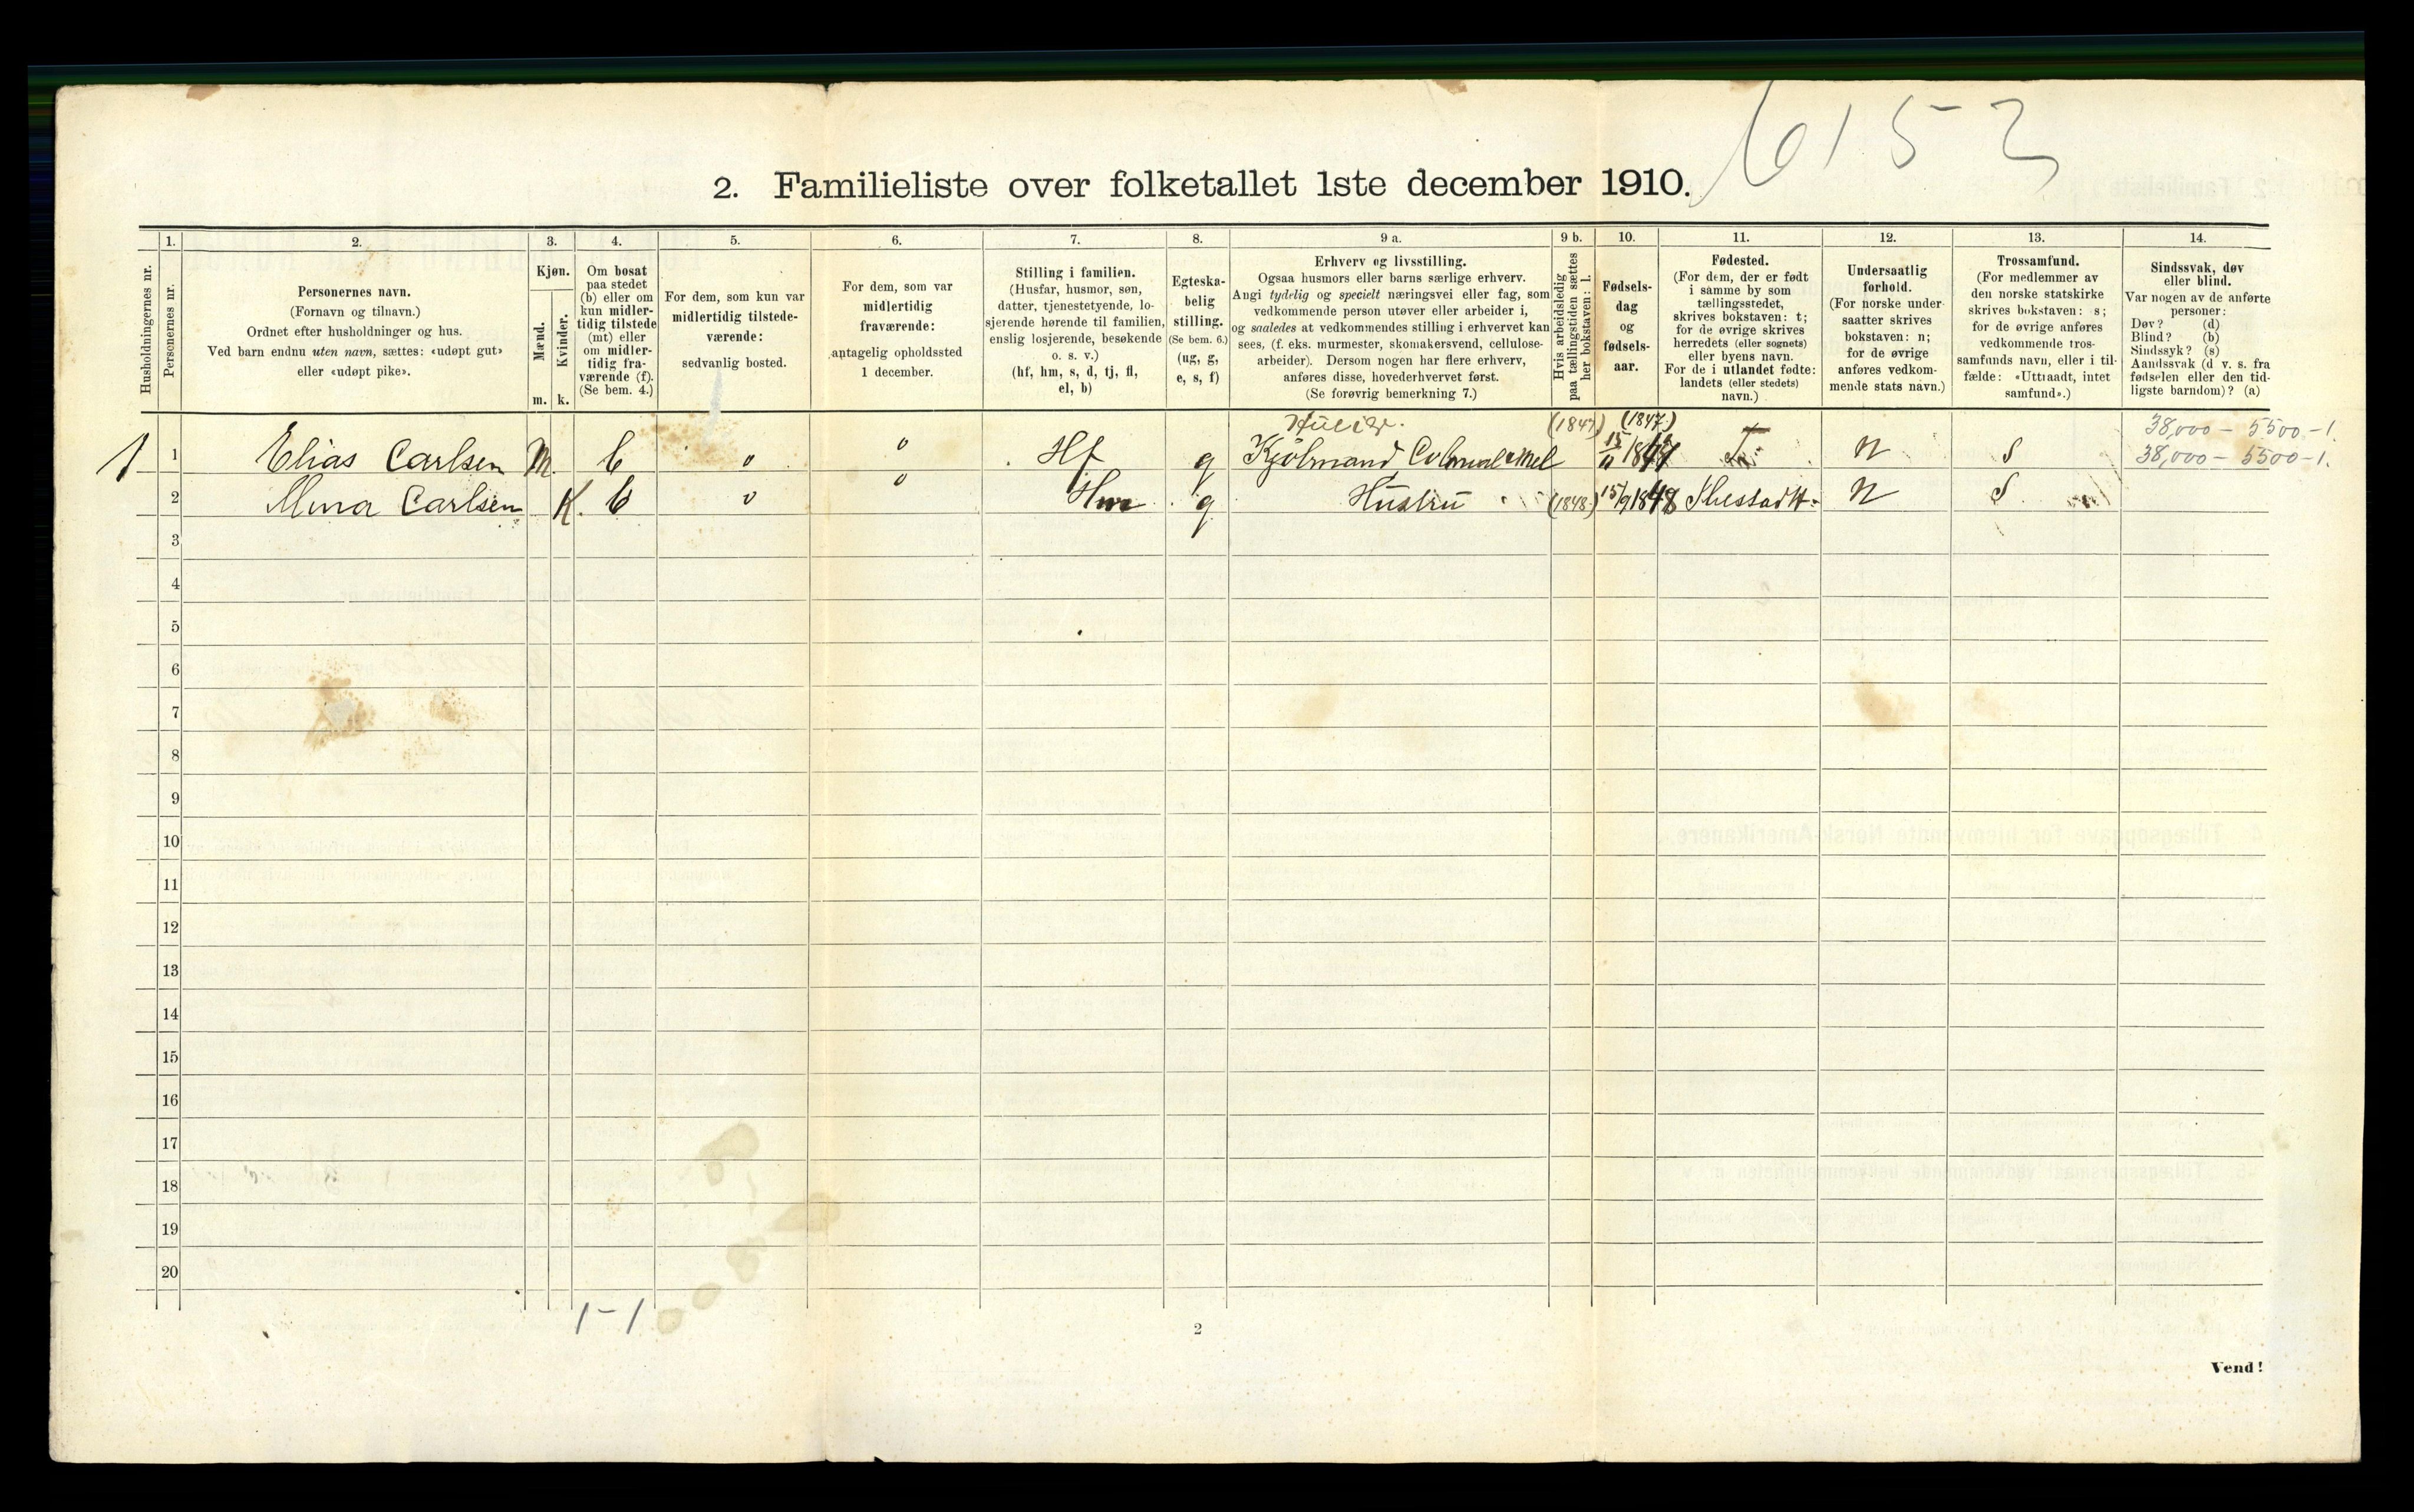 6153
2. Familieliste over folketallet 1ste december 1910.
Husholdningernes nr.
1.
Personernes nr.
2.
Personernes navn.
(Fornavn og tilnavn.)
Ordnet efter husholdninger og hus.
Ved barn endnu uten navn, sættes: «udøpt gut»
eller «udøpt pike».
3.
Kjøn.
Mænd.
Kvinder.
m. k.
4.
Om bosat
paa stedet
(b) eller om
kun midler-
tidig tilstede
(mt) eller
om midler-
tidig fra-
værende (f).
(Se bem. 4.)
5.
For dem, som kun var
midlertidig tilstede-
værende:
sedvanlig bosted.
6.
For dem, som var
midlertidig
fraværende:
antagelig opholdssted
1 december.
7.
Stilling i familien.
(Husfar, husmor, søn,
datter, tjenestetyende, lo-
sjerende hørende til familien,
enslig losjerende, besøkende
o. s. v.)
(hf, hm, s, d, tj, fl,
el, b)
8.
Egteska-
belig
stilling.
(Se bem. 6.)
(ug, g,
e, s, f)
9 a.
Erhverv og livsstilling.
Ogsaa husmors eller barns særlige erhverv.
Angi tydelig og specielt næringsvei eller fag, som
vedkommende person utøver eller arbeider i,
og saaledes at vedkommendes stilling i erhvervet kan
sees, (f. eks. murmester, skomakersvend, cellulose-
arbeider). Dersom nogen har flere erhverv,
anføres disse, hovederhvervet først.
(Se forøvrig bemerkning 7.)
9 b.
Hvis arbeidsledig
paa tællingstiden sættes
her bokstaven: l.
10.
Fødsels-
dag
og
fødsels-
aar.
11.
Fødested.
(For dem, der er født
i samme by som
tællingsstedet,
skrives bokstaven: t;
for de øvrige skrives
herredets (eller sognets)
eller byens navn.
For de i utlandet fødte:
landets (eller stedets)
navn.)
12.
Undersaatlig
forhold.
(For norske under-
saatter skrives
bokstaven: n;
for de øvrige
anføres vedkom-
mende stats navn.)
13.
Trossamfund.
(For medlemmer av
den norske statskirke
skrives bokstaven: s;
for de øvrige anføres
vedkommende tros-
samfunds navn, eller i til-
fælde: «Uttraadt, intet
samfund».)
14.
Sindssvak, døv
eller blind.
Var nogen av de anførte
personer:
Døv? (d)
Blind? (b)
Sindssyk? (s)
Aandssvak (d v. s. fra
fødselen eller den tid-
ligste barndom)? (a)
(1847) (1847) 38,000 – 5500 – 1.
1 1 Elias Carlsen M. b 0 0 Hf g Kjölmand, Colonial &Mel 15/11 1847 T. N S 38,000 – 5500 – 1.
2 Mina Carlsen K. b 0 0 Hm g Hustru (1848) 15/9 1848 N S
3
4
5
6
7
8
9
10
11
12
13
14
15
16
17
18
19
20
1–1
2
Vend!